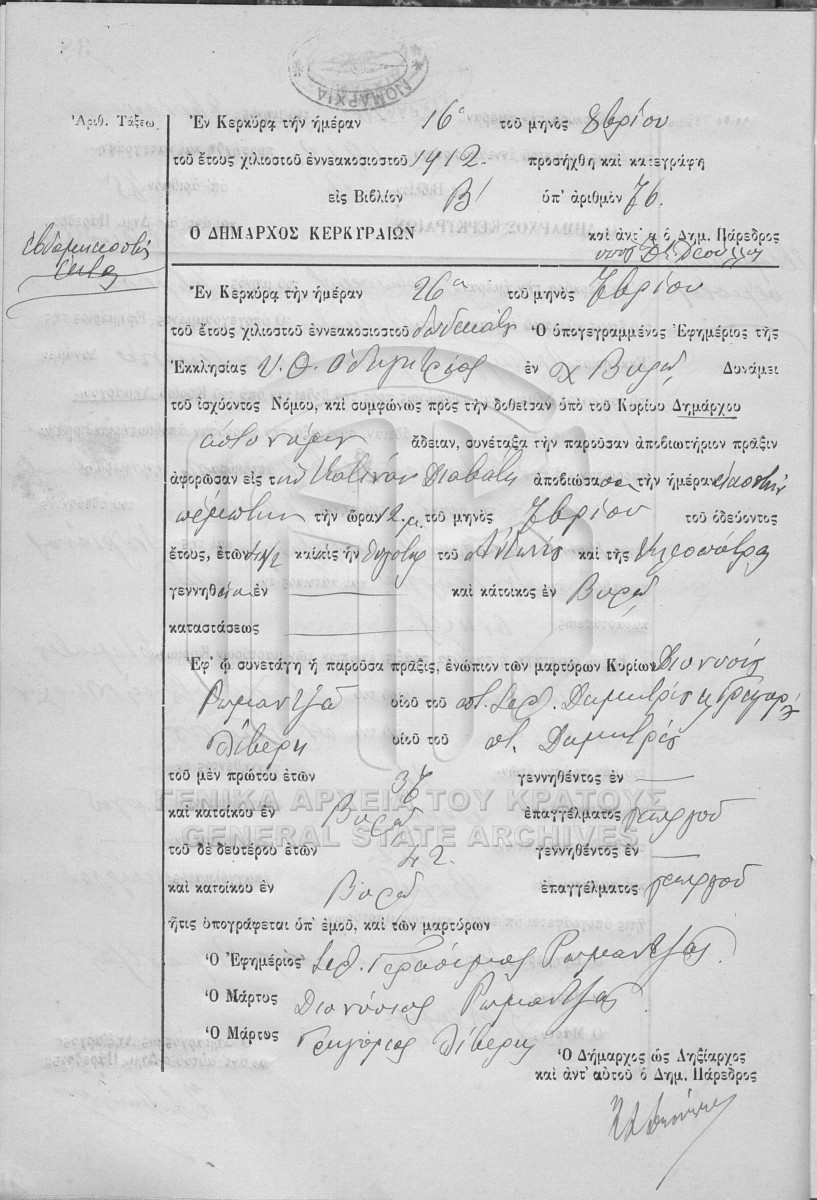 ΝΟΜΑΡΧΙΑ
Ἀριθ. Τάξεω
Ἐν Κερκύρᾳ τὴν ἡμέραν 16ᵃ τοῦ μηνὸς 8βρίου
τοῦ ἔτους χιλιοστοῦ ἐννεακοσιοστοῦ 1912. προσήχθη καὶ κατεγράφη
εἰς Βιβλίον Β' ὑπ' ἀριθμὸν 76.
Ο ΔΗΜΑΡΧΟΣ ΚΕΡΚΥΡΑΙΩΝ καὶ ἀντ' α ὁ Δημ. Πάρεδρος
Ἐν Κερκύρᾳ τὴν ἡμέραν 26ᵃ τοῦ μηνὸς 7βρίου
τοῦ ἔτους χιλιοστοῦ ἐννεακοσιοστοῦ δωδεκάτου Ὁ ὑπογεγραμμένος Ἐφημέριος τῆς
Ἐκκλησίας Υ. Θ. Ὁδηγητρίας ἐν χ Βυρῷ Δυνάμει
τοῦ ἰσχύοντος Νόμου, καὶ συμφώνως πρὸς τὴν δοθεῖσαν ὑπὸ τοῦ Κυρίου Δημάρχου
ἄδειαν, συνέταξα τὴν παροῦσαν ἀποβιωτήριον πρᾶξιν
ἀφορῶσαν εἰς τὴν Κατίναν Διαβάτη ἀποβιώσασαν τὴν ἡμέραν εἰκοστὴν
πέμπτην τὴν ὥραν 2 μ. τοῦ μηνὸς 7βρίου τοῦ ὁδεύοντος
ἔτους, ἐτῶν καὶ ἥτις ἦν θυγάτηρ τοῦ Ἀντωνίου καὶ τῆς Κλεοπάτρας
γεννηθεῖσα ἐν καὶ κάτοικος ἐν Βυρῷ
καταστάσεως
Ἐφ' ᾧ συνετάγη ἡ παροῦσα πρᾶξις, ἐνώπιον τῶν μαρτύρων Κυρίων Διονυσίου
Ρωμαντζᾶ υἱοῦ τοῦ ποτ. Ἱερ. Δημητρίου κ Γρηγορίου
Λίβερη υἱοῦ τοῦ ποτ. Δημητρίου
τοῦ μὲν πρώτου ἐτῶν 37 γεννηθέντος ἐν
καὶ κατοίκου ἐν Βυρῷ ἐπαγγέλματος γεωργοῦ
τοῦ δὲ δευτέρου ἐτῶν 42. γεννηθέντος ἐν
καὶ κατοίκου ἐν Βυρῷ ἐπαγγέλματος γεωργοῦ
ἥτις ὑπογράφεται ὑπ' ἐμοῦ, καὶ τῶν μαρτύρων
Ὁ Ἐφημέριος Ἱερ. Γεράσιμος Ρωμαντζᾶς.
Ὁ Μάρτυς Διονύσιος Ρωμαντζᾶς
Ὁ Μάρτυς Γρηγόριος Λίβερης
Ὁ Δήμαρχος ὡς Ληξίαρχος
καὶ ἀντ' αὐτοῦ ὁ Δημ. Πάρεδρος
ΓΕΝΙΚΑ ΑΡΧΕΙΑ ΤΟΥ ΚΡΑΤΟΥΣ
GENERAL STATE ARCHIVES